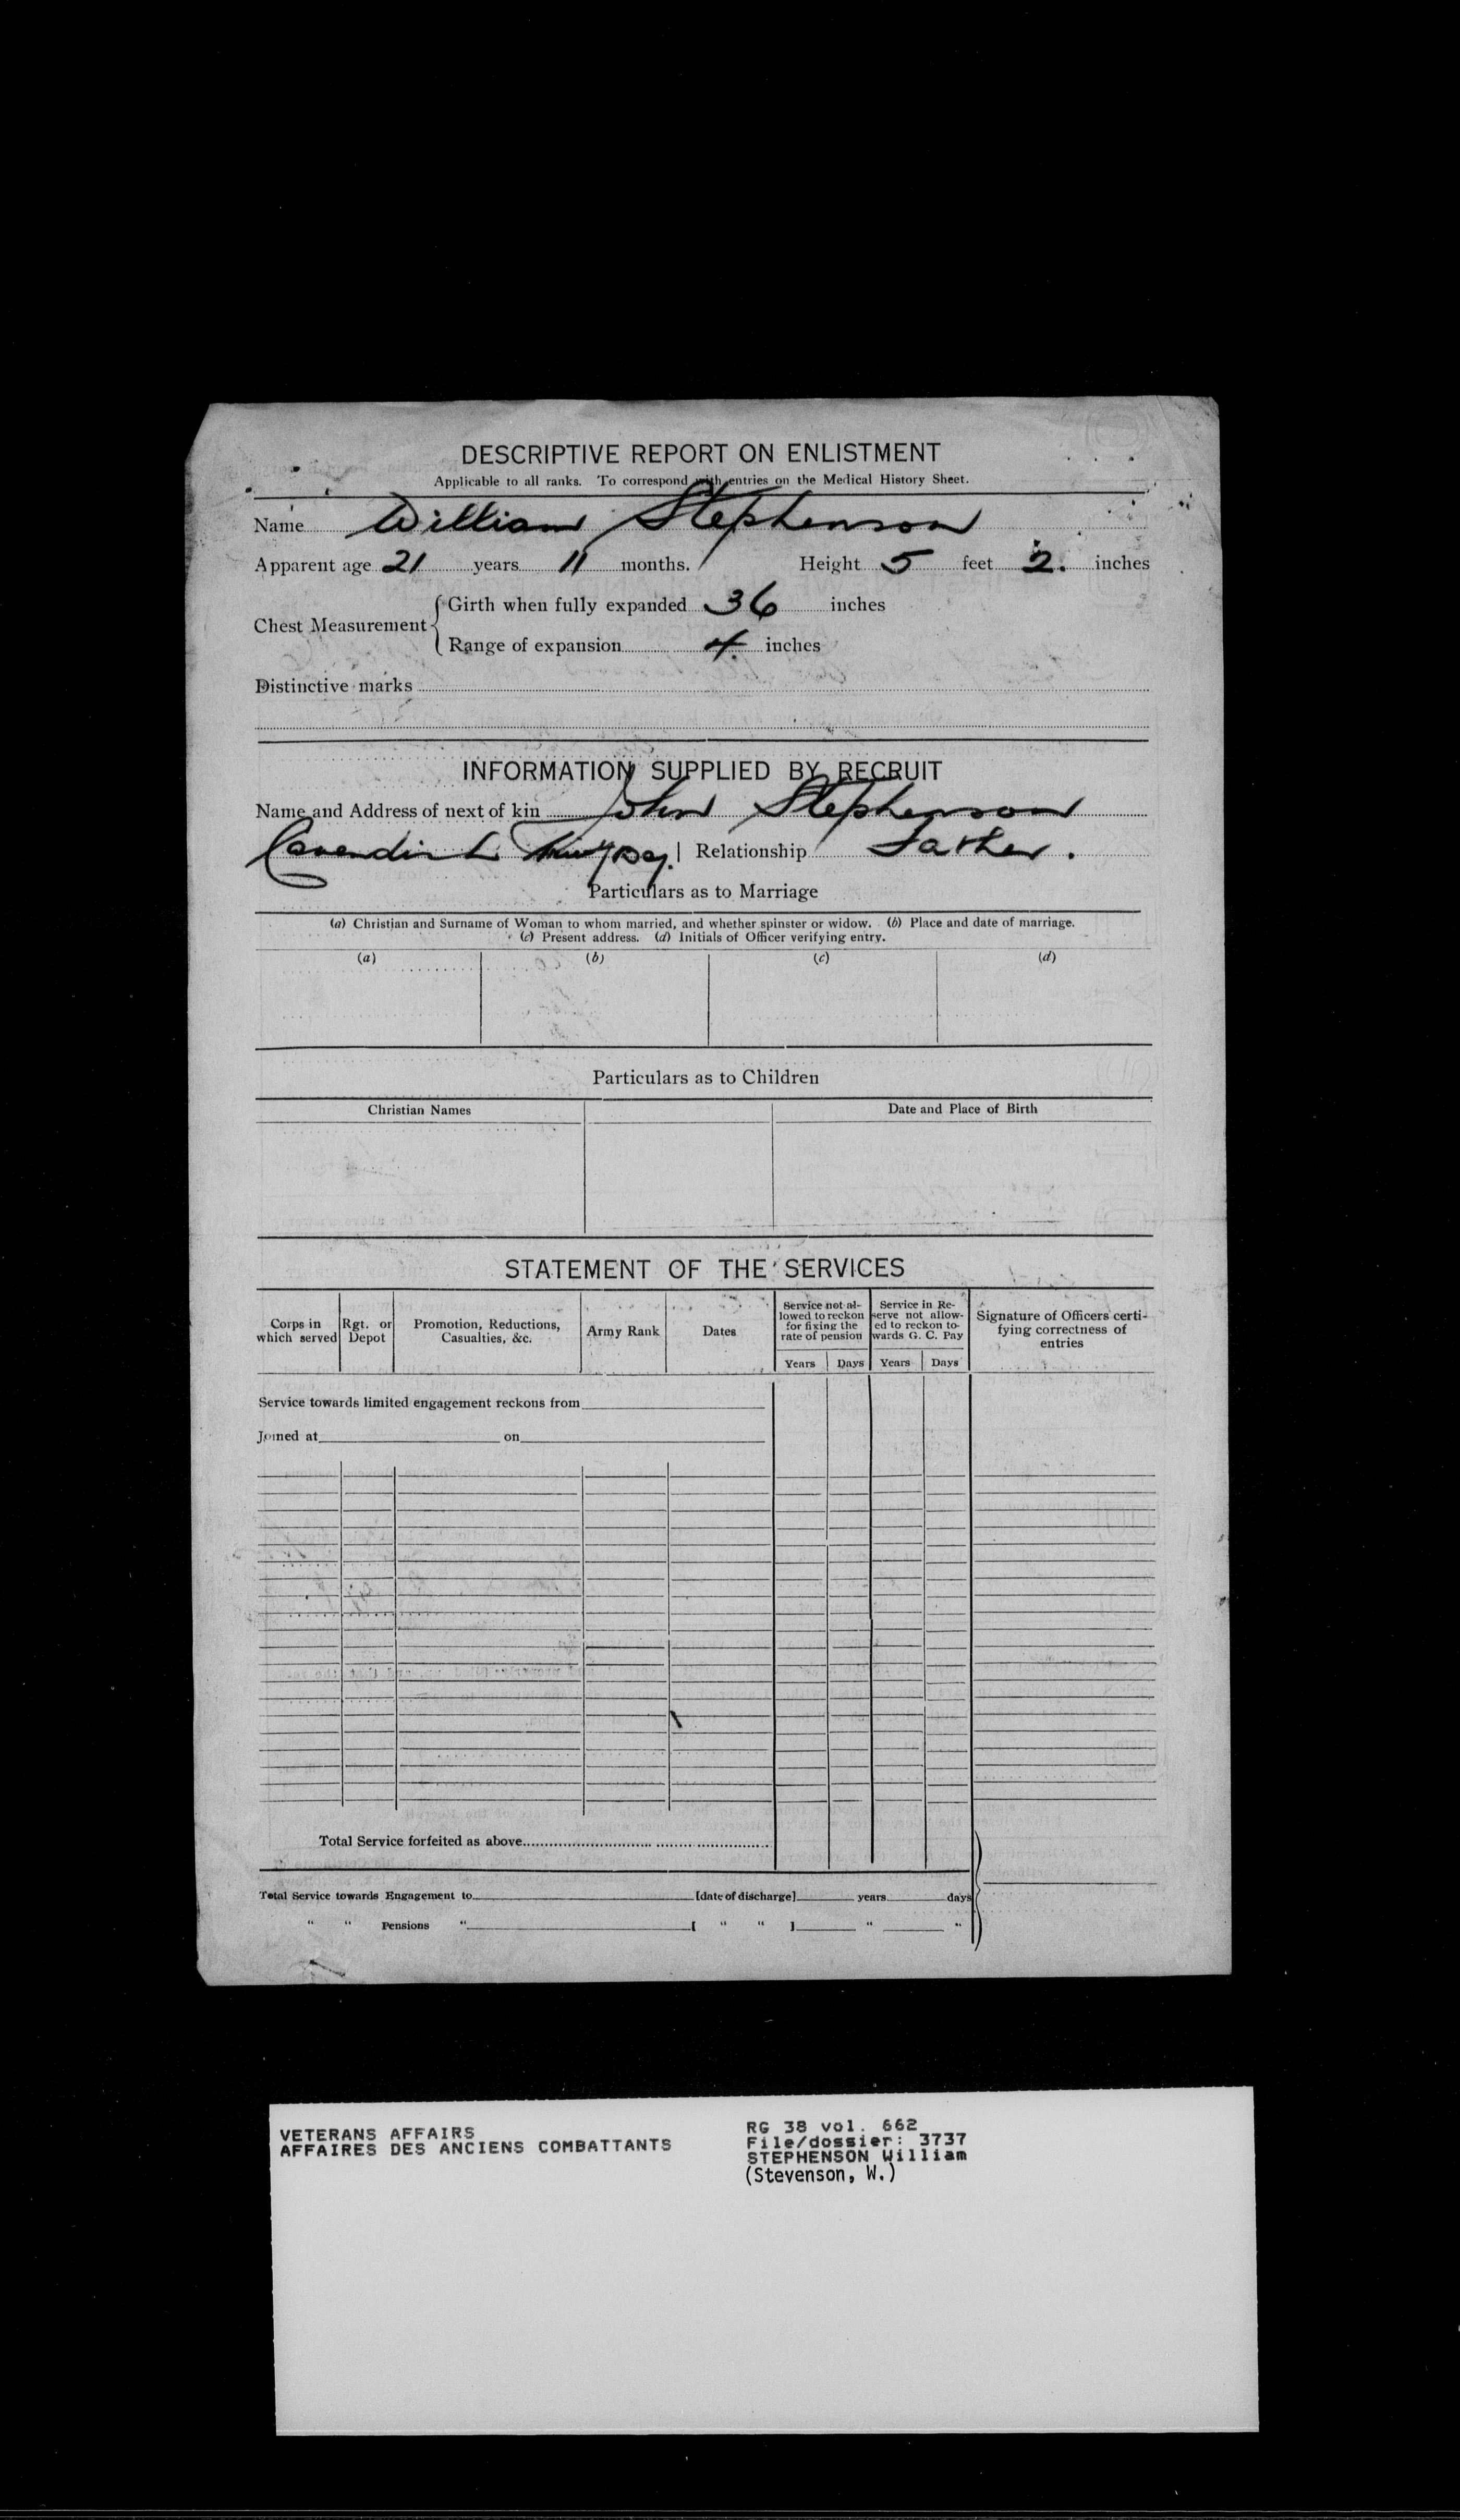 DESCRIPTIVE REPORT ON ENLISTMENT
Applicable to all ranks. To correspond with entries on the Medical History Sheet.
Name William Stephenson
Apparent age 21 years 11 months. Height 5 feet 2. inches
Chest Measurement { Girth when fully expanded 36 inches
Range of expansion 4. inches
Distinctive marks
INFORMATION SUPPLIED BY RECRUIT
Name and Address of next of kin John Stephenson
Cavendish Relationship Father.
Particulars as to Marriage
(a) Christian and Surname of Woman to whom married, and whether spinster or widow. (b) Place and date of marriage.
(c) Present address. (d) Initials of Officer verifying entry.
(a) (b) (c) (d)
Particulars as to Children
Christian Names Date and Place of Birth
STATEMENT OF THE SERVICES
Corps in which served Rgt. or Depot Promotion, Reductions, Casualties, &c. Army Rank Dates Service not allowed to reckon for fixing the rate of pension Service in Reserve not allowed to reckon towards G. C. Pay Signature of Officers certifying correctness of entries
Years Days Years Days
Service towards limited engagement reckons from
Joined at on
Total Service forfeited as above
Total Service towards Engagement to [date of discharge] years days
" " Pensions " [ " " ] " "
VETERANS AFFAIRS
AFFAIRES DES ANCIENS COMBATTANTS
RG 38 vol. 662
File/dossier: 3737
STEPHENSON William
(Stevenson, W.)